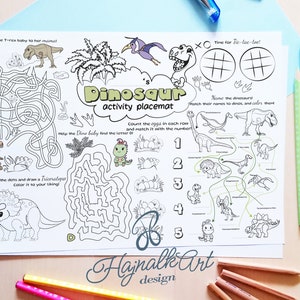 T-rex baby to her mama!
Dinosaur
activity placemat
XO
Time for Tic-tac-toe!
Help the Dino baby find the letter D!
Count the eggs in each row
and match it with the number!
Name the dinosaurs!
Match their names to dinos, and color them
1
2
3
4
5
D
the dots and draw a Triceratops
Color it to your liking!
HajnalkArt
design